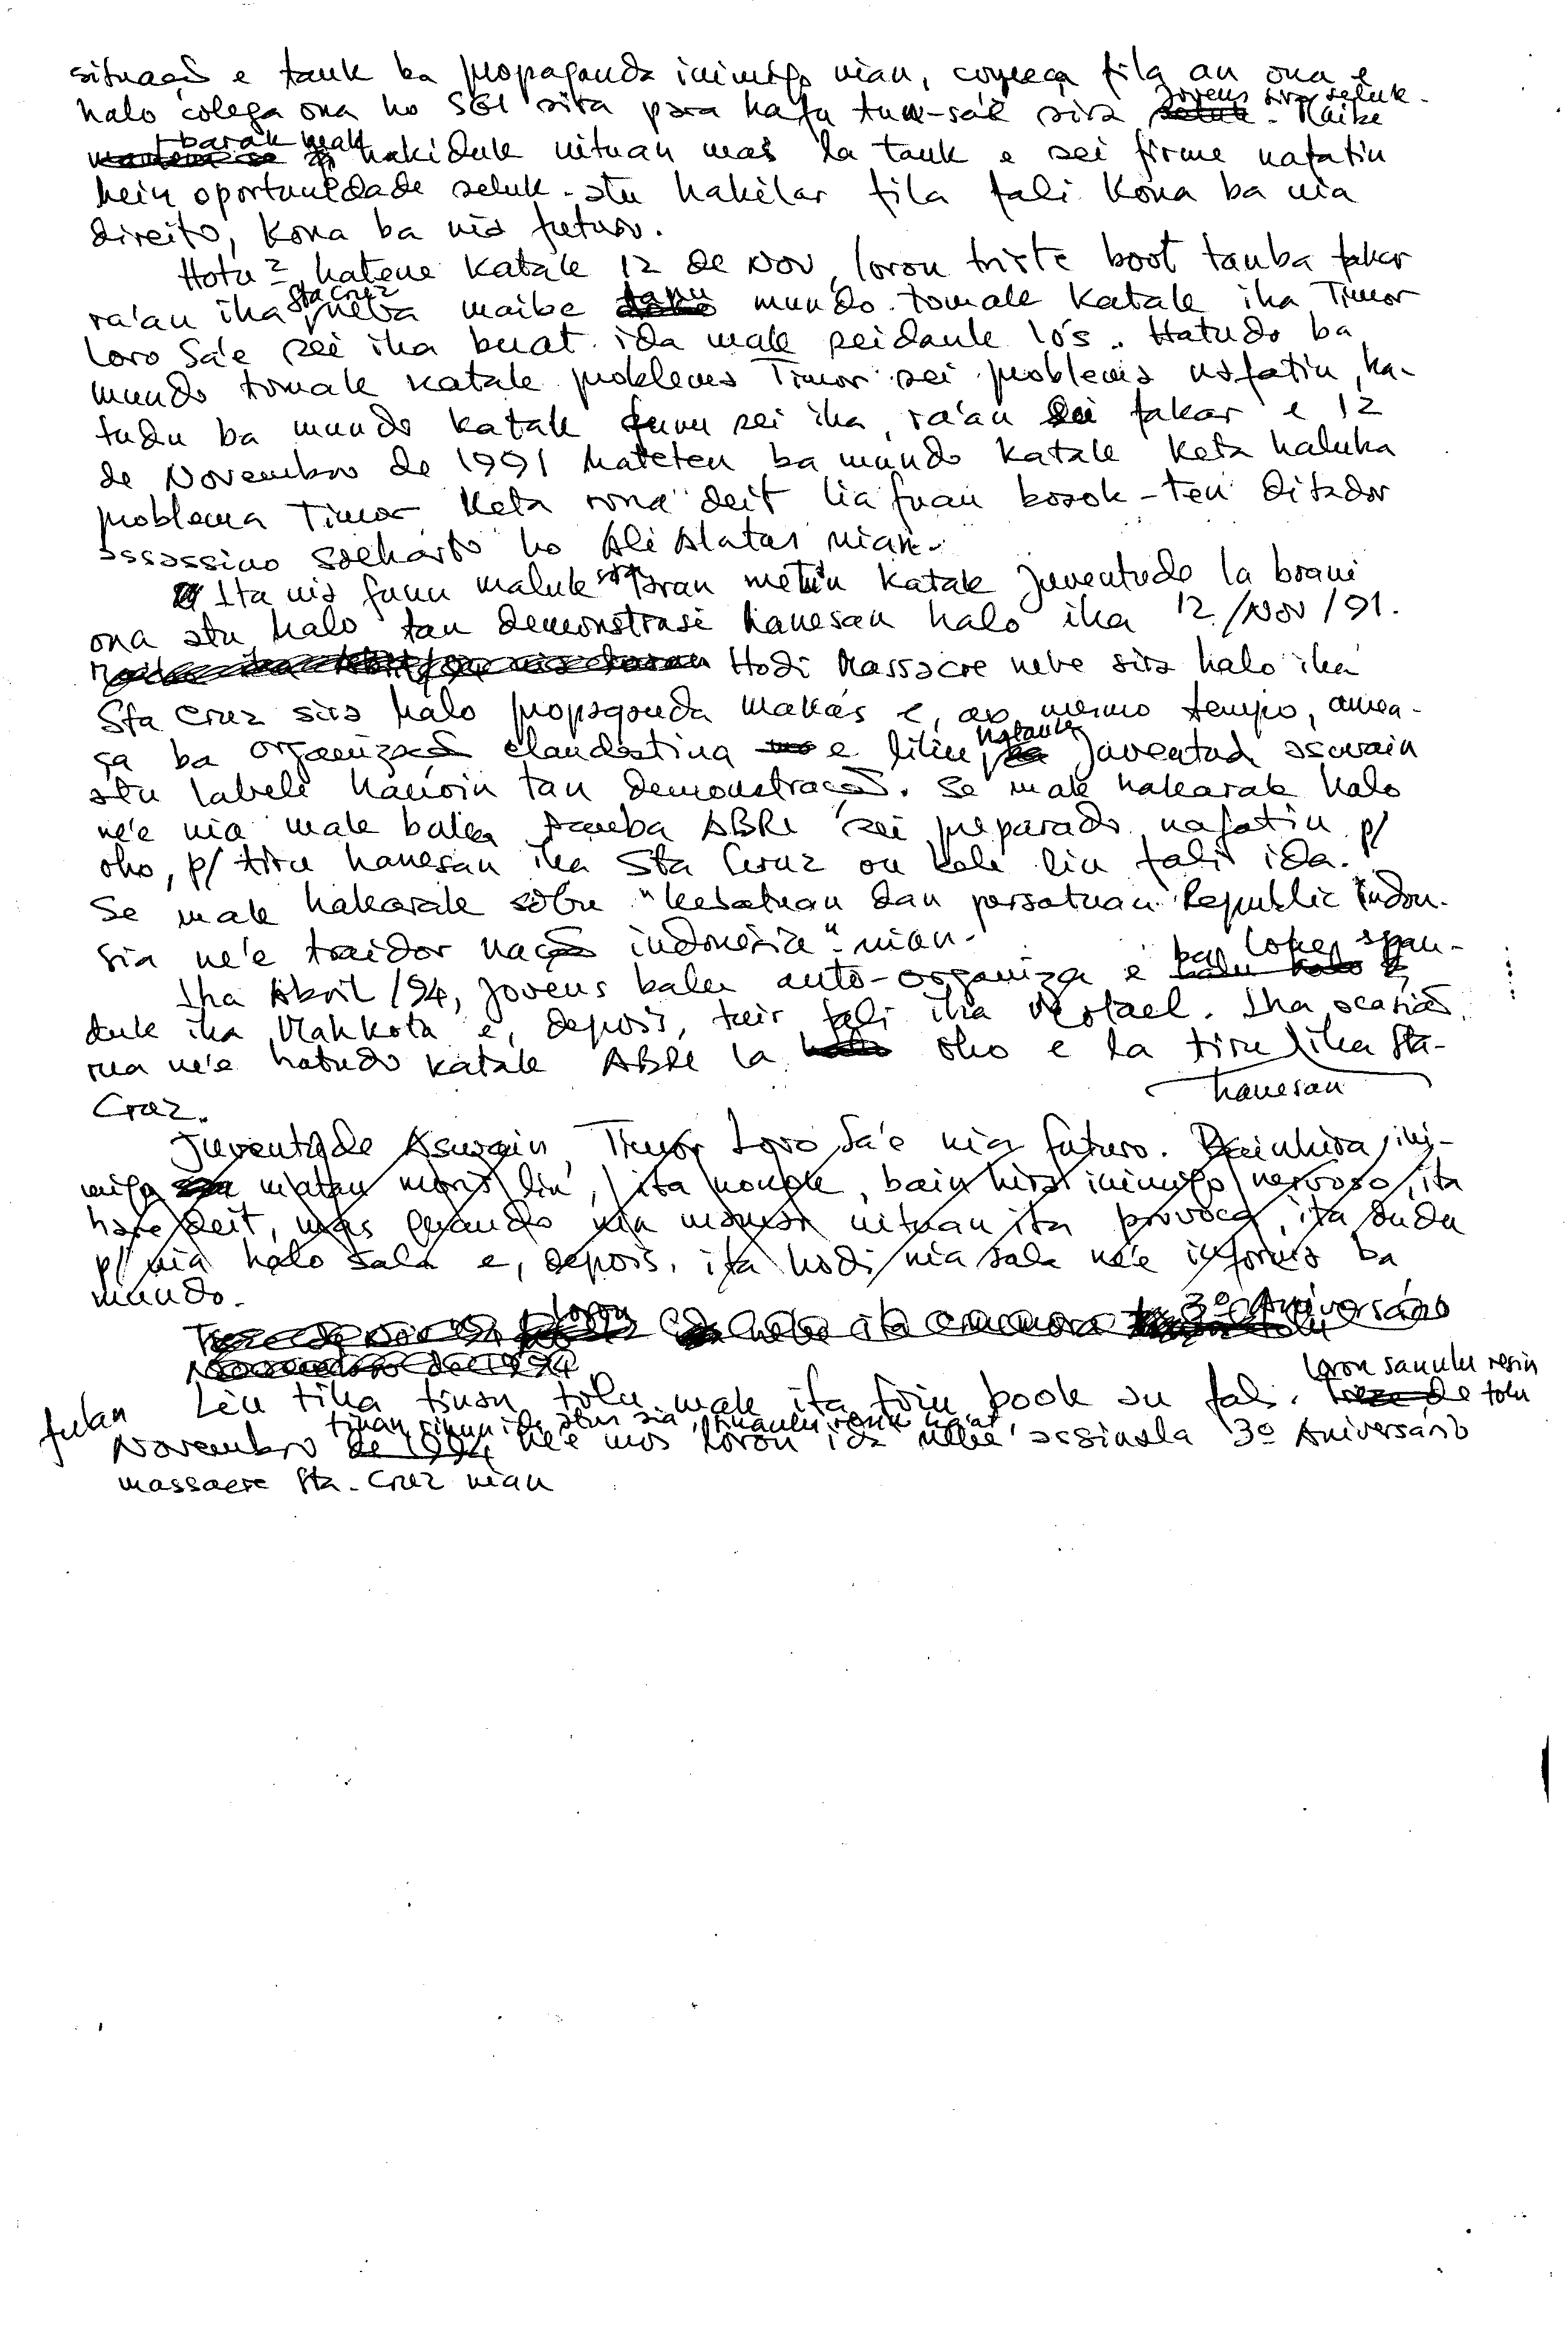 situação e tauk ba propaganda inimigo nian, começa fila an ona e
halo colega ona ho SGI sira para hafu tun-sa'e sira jovens sira seluk. Maibe
barak mak hakiduk nituan mas la tauk e sei firme nafatin
hein oportunidade seluk atu hakilar fila fali kona ba nia
direito, kona ba nia futuro.
Hotu2 hatene katak 12 de Nov, loron triste boot tanba fakar
ra'an iha Sta Cruz, neba maibe tanu mundo tomak katak iha Timor
Loro Sa'e sei iha buat ida mak seidauk lós. Hatudo ba
mundo tomak katak problema Timor sei problema nafatin, ha-
tudu ba mundo katak funu sei iha, ra'an sei fakar e 12
de Novembro de 1991 hateten ba mundo katak keta haluha
problema Timor keta rona deit liafuan bosok-ten ditador
assassino Soeharto ho Ali Alatas nian.
Ita nia funu maluk sira toran metin katak juventude la brani
ona atu halo tan demonstrasi hanesan halo iha 12/Nov/91.
Hodi Massacre nebe sira halo iha
Sta Cruz sira halo propaganda makás e, ao mesmo tempo, amea-
ça ba organização clandestina e liliu, hatauk juventud asuwain
atu labele hanoin tan demonstração. Se mak hakarak halo
ne'e nia mak balea tamba ABRI sei preparado nafatin p/
oho, p/ tiru hanesan iha Sta Cruz ou bele liu fali ida.
Se mak hakarak sobu "kesatuan dan persatuan Republic Indon-
sia ne'e traidor nação indonésia" nian.
Iha Abril/94, jovens balu auto-organiza e ba loke span-
duk iha Mahkota e, depois, tuir fali iha Motael. Iha ocasião
rua ne'e hatudo katak ABRI la oho e la tiru hanesan iha Sta-
Cruz.
Juventude Asuwain, Timor Loro Sa'e nia futuro. Bainhira ini-
migo matan moris liu, ita nonok, bain hira inimigo nervoso, ita
hare deit, mas quando nia mamar nituan ita provoca, ita dudu
p/ nia halo sala e, depois, ita hodi nia sala ne'e informa ba
mundo.
loron nebe ita comemora 3º Aniversário
Novembro de 1994
Liu tiha tinan tolu mak ita foin book an fali. loron sanulu resin tolu
fulan Novembro tinan rihun ida atus sia, sanulu resin haat ne'e mos loron ida nebe assinala 3º Aniversário
massacre Sta. Cruz nian